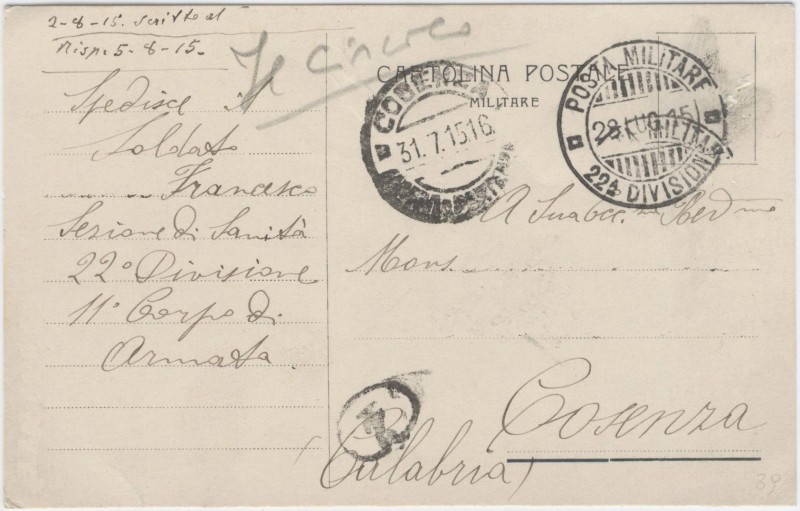 2-8-15. scritto al
Risp. 5-8-15.
Il circolo
CARTOLINA POSTALE
MILITARE
COSENZA
31.7.15 16
POSTA MILITARE
28 LUG 15
22ª DIVISIONE
Spedisce il
Soldato
Francesco
Sezione di Sanità
22º Divisione
11º Corpo di
Armata
A Sua Ecc.za Rev.ma
Mons.
Cosenza
(Calabria)
39